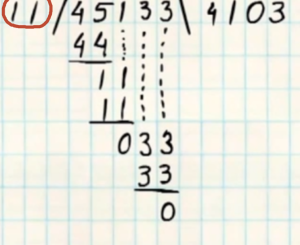 11 / 45133 \ 4103
44
11
11
033
33
0